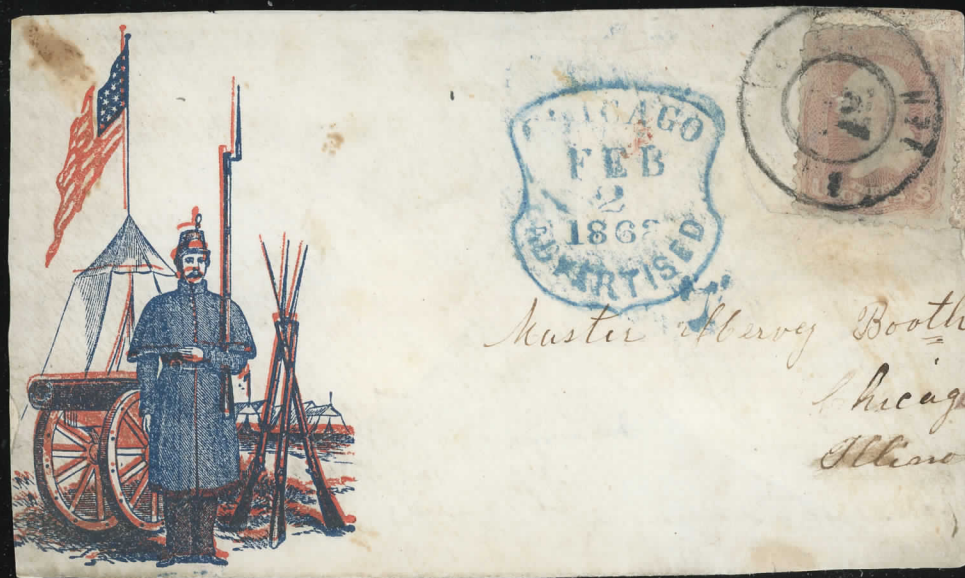 CHICAGO
FEB
2
186
ADVERTISED
2
1
Master Hervey Booth
Chicag
Illino